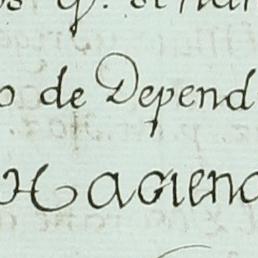 o de Depend
Hacienc